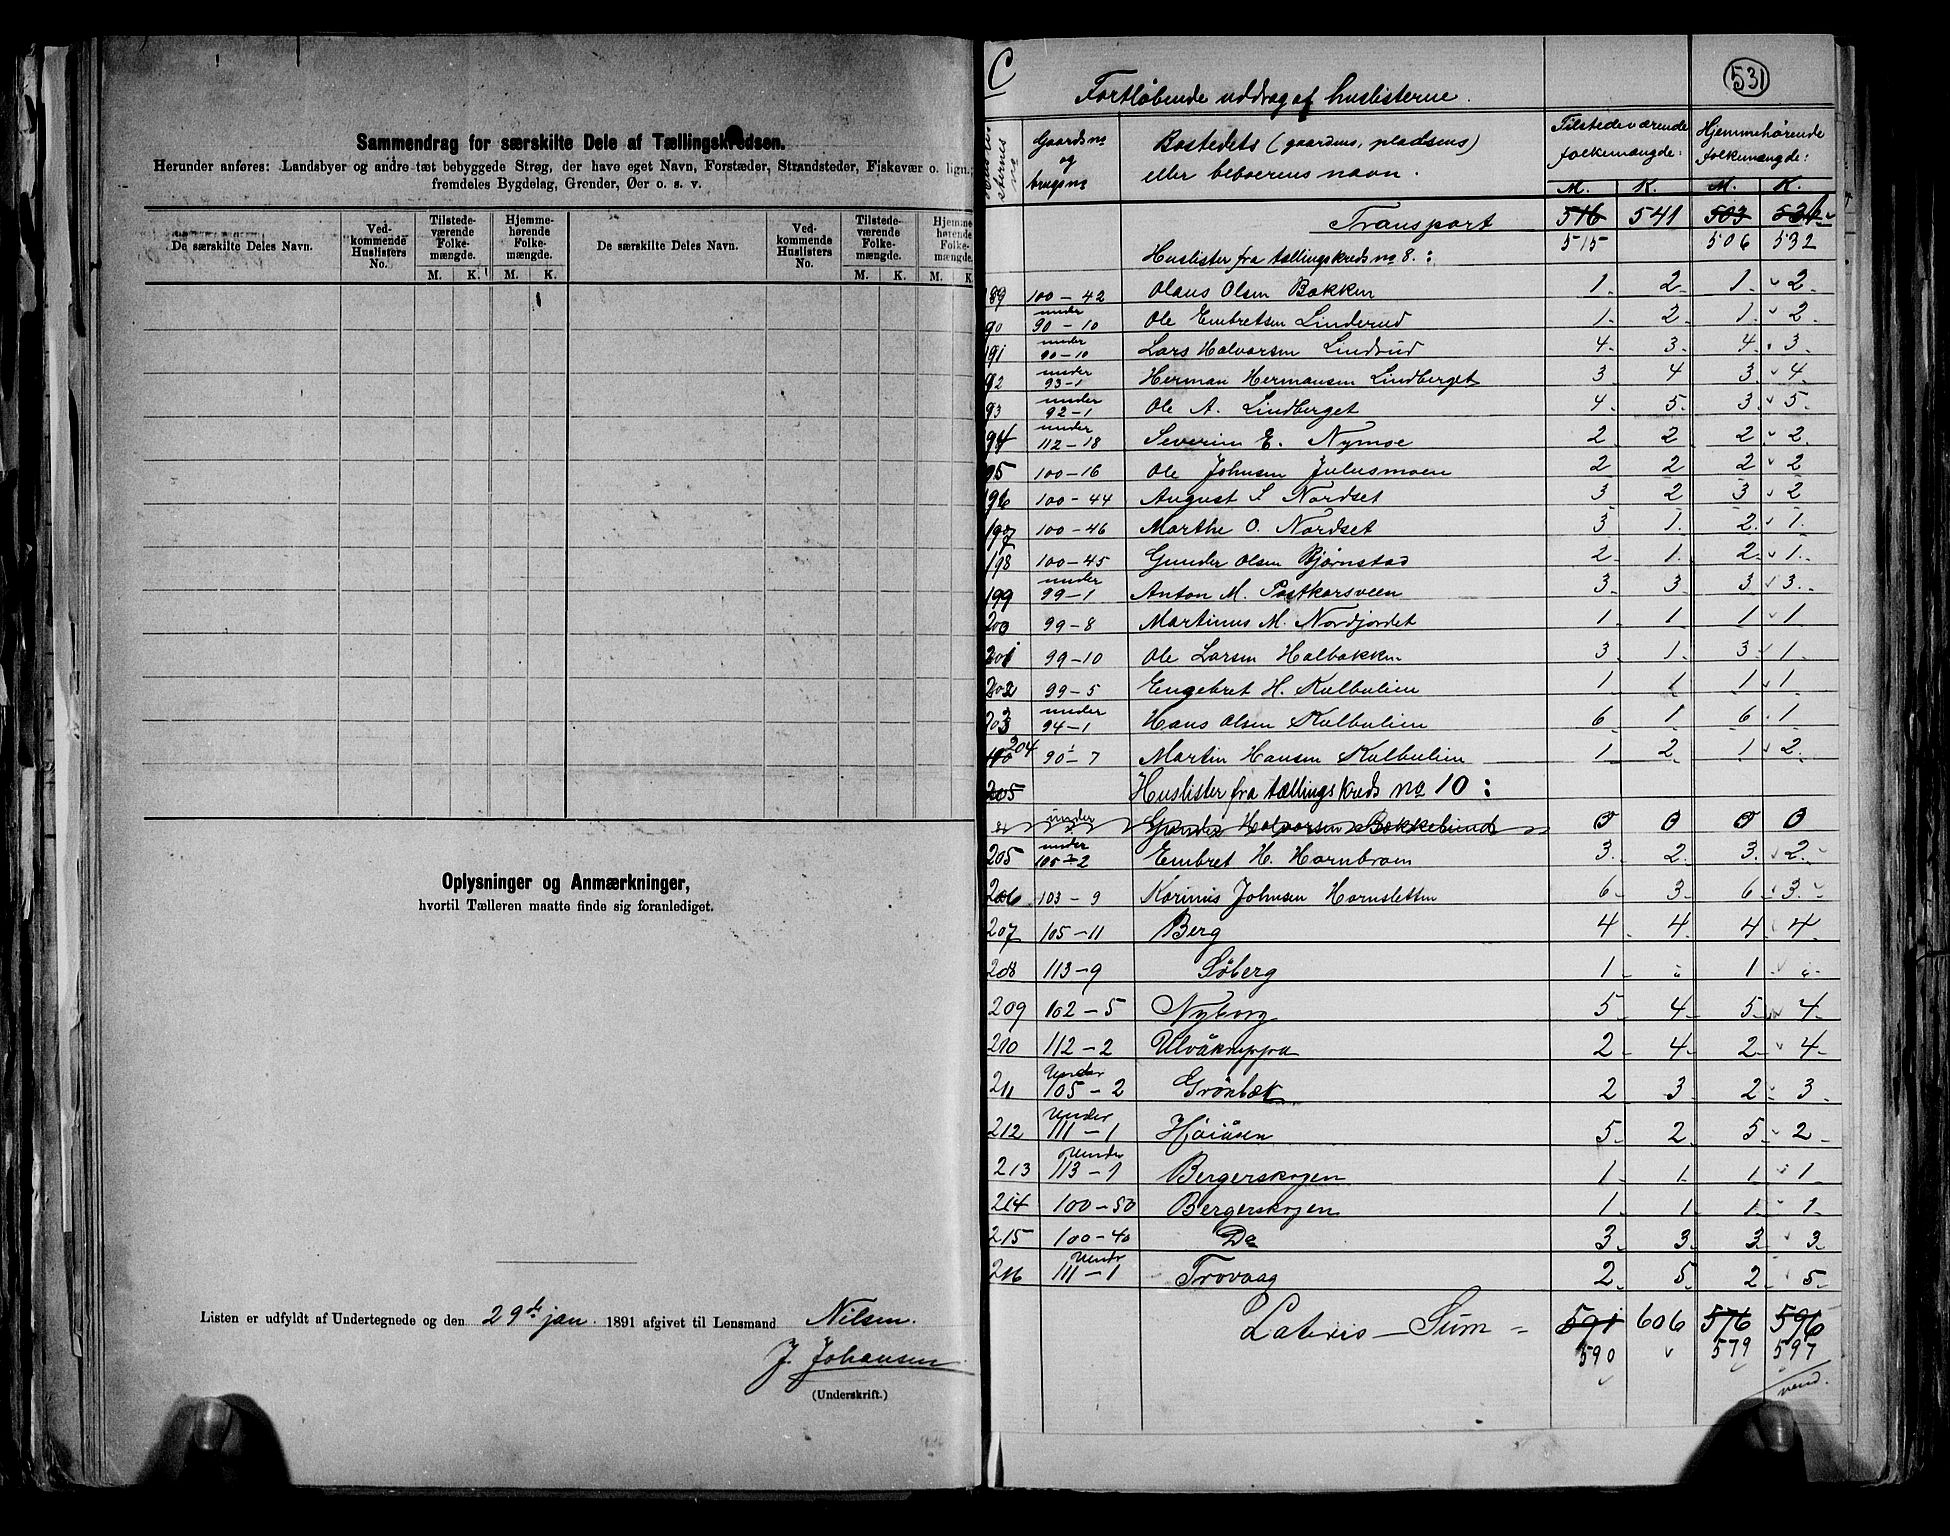 Sammendrag for særskilte Dele af Tællingskredsen.
Herunder anføres: Landsbyer og andre tæt bebyggede Strøg, der have eget Navn, Forstæder, Strandsteder, Fiskevær o. lign.;
fremdeles Bygdelag, Grender, Øer o. s. v.
De særskilte Deles Navn. Ved-kommende Huslisters No. Tilstede-værende Folke-mængde. Hjemme-hørende Folke-mængde. De særskilte Deles Navn. Ved-kommende Huslisters No. Tilstede-værende Folke-mængde. Hjemme-hørende Folke-mængde.
M. K. M. K. M. K. M. K.
Oplysninger og Anmærkninger,
hvortil Tælleren maatte finde sig foranlediget.
Listen er udfyldt af Undertegnede og den 29de jan 1891 afgivet til Lensmand Nilsen.
J. Johansen
(Underskrift.)
C
531
Fortløbende uddrag af huslisterne.
Huslisternes no Gaards no og brugs no Bostedets (gaardens, pladsens) eller beboerens navn. Tilstedeværende folkemængde: Hjemmehørende folkemængde:
M. K. M. K.
Transport 516 541 503 531
515 506 532
Huslister fra tællingskreds no 8. :
189 100-42 Olaus Olsen Bakken 1 2 1 2
90 under 90-10 Ole Embretsen Linderud 1 2 1 2
191 under 90-10 Lars Halvorsen Lindrud 4 3 4 3
92 under 93-1 Herman Hermansen Lindberget 3 4 3 4
93 under 92-1 Ole A. Lindberget 4 5 3 5
194 under 112-18 Severin E. Nymoe 2 2 2 2
95 100-16 Ole Johnsen Julusmoen 2 2 2 2
196 100-44 August S Nordset 3 2 3 2
197 100-46 Marthe O. Nordset 3 1 2 1
198 100-45 Gunder Olsen Bjørnstad 2 1 2 1
199 under 99-1 Anton M. Postkorsveen 3 3 3 3
200 99-8 Martinus M. Nordjordet 1 1 1 1
201 99-10 Ole Larsen Halbakken 3 1 3 1
202 99-5 Engebret H. Kulbulien 1 1 1 1
203 under 94-1 Hans Olsen Kulbulien 6 1 6 1
204 90-7 Martin Hansen Kulbulien 1 2 1 2
205 Huslister fra tællingskreds no 10 :
under Gunder Halvorsen Bækkelund 0 0 0 0
205 under 105-2 Embret H. Hornbroen 3 2 3 2
206 103-9 Karinus Johnsen Hornsletten 6 3 6 3
207 105-11 Berg 4 4 4 4
208 113-9 Søberg 1 " 1 "
209 102-5 Nyborg 5 4 5 4
210 112-2 Ulvåknappa 2 4 2 4
211 Under 105-2 Grönbæk 2 3 2 3
212 Under 111-1 Høiåsen 5 2 5 2
213 Under 113-1 Bergerskogen 1 1 1 1
214 100-50 Bergerskogen 1 1 1 1
215 100-40 Do 3 3 3 3
216 Under 111-1 Trovaag 2 5 2 5
Lateris - Sum = 591 606 576 596
590 579 597
vend.